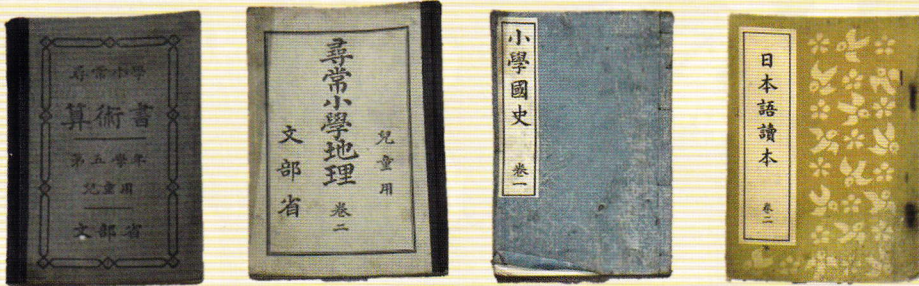 尋常小學
算術書
第五學年
兒童用
文部省
兒童用
尋常小學地理 卷二
文部省
小學國史 卷一
日本語讀本 卷二